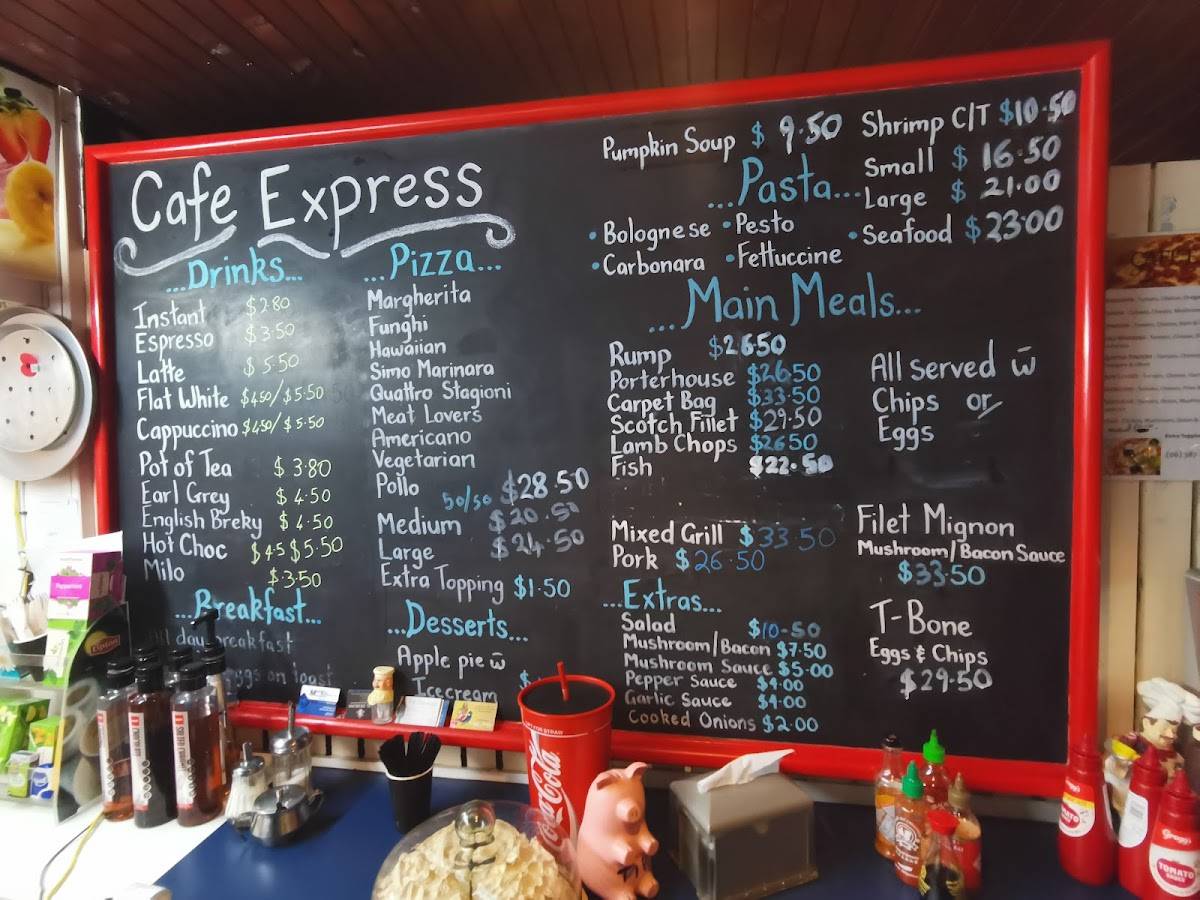 Cafe Express
...Drinks...
Instant $2.80
Espresso $3.50
Latte $5.50
Flat White $4.50/$5.50
Cappuccino $4.50/$5.50
Pot of Tea $3.80
Earl Grey $4.50
English Breky $4.50
Hot Choc $4.5 $5.50
Milo $3.50
...Breakfast...
All day breakfast
eggs on toast
...Pizza...
Margherita
Funghi
Hawaiian
Simo Marinara
Quattro Stagioni
Meat Lovers
Americano
Vegetarian
Pollo
50/50 $28.50
Medium $20.50
Large $24.50
Extra Topping $1.50
...Desserts...
Apple pie w̄
Icecream
Pumpkin Soup $9.50
Shrimp C/T $10.50
...Pasta...
Small $16.50
Large $21.00
• Bolognese • Pesto
• Carbonara • Fettuccine
• Seafood $23.00
...Main Meals...
Rump $26.50
Porterhouse $26.50
Carpet Bag $33.50
Scotch Fillet $29.50
Lamb Chops $26.50
Fish $22.50
All served w̄
Chips or
Eggs
Mixed Grill $33.50
Pork $26.50
Filet Mignon
Mushroom/Bacon Sauce
$33.50
T-Bone
Eggs & Chips
$29.50
...Extras...
Salad $10.50
Mushroom/Bacon $7.50
Mushroom Sauce $5.00
Pepper Sauce $4.00
Garlic Sauce $4.00
Cooked Onions $2.00
Lipton
Coca-Cola
TOMATO
SAUCE
Gregg's
TOMATO
SAUCE